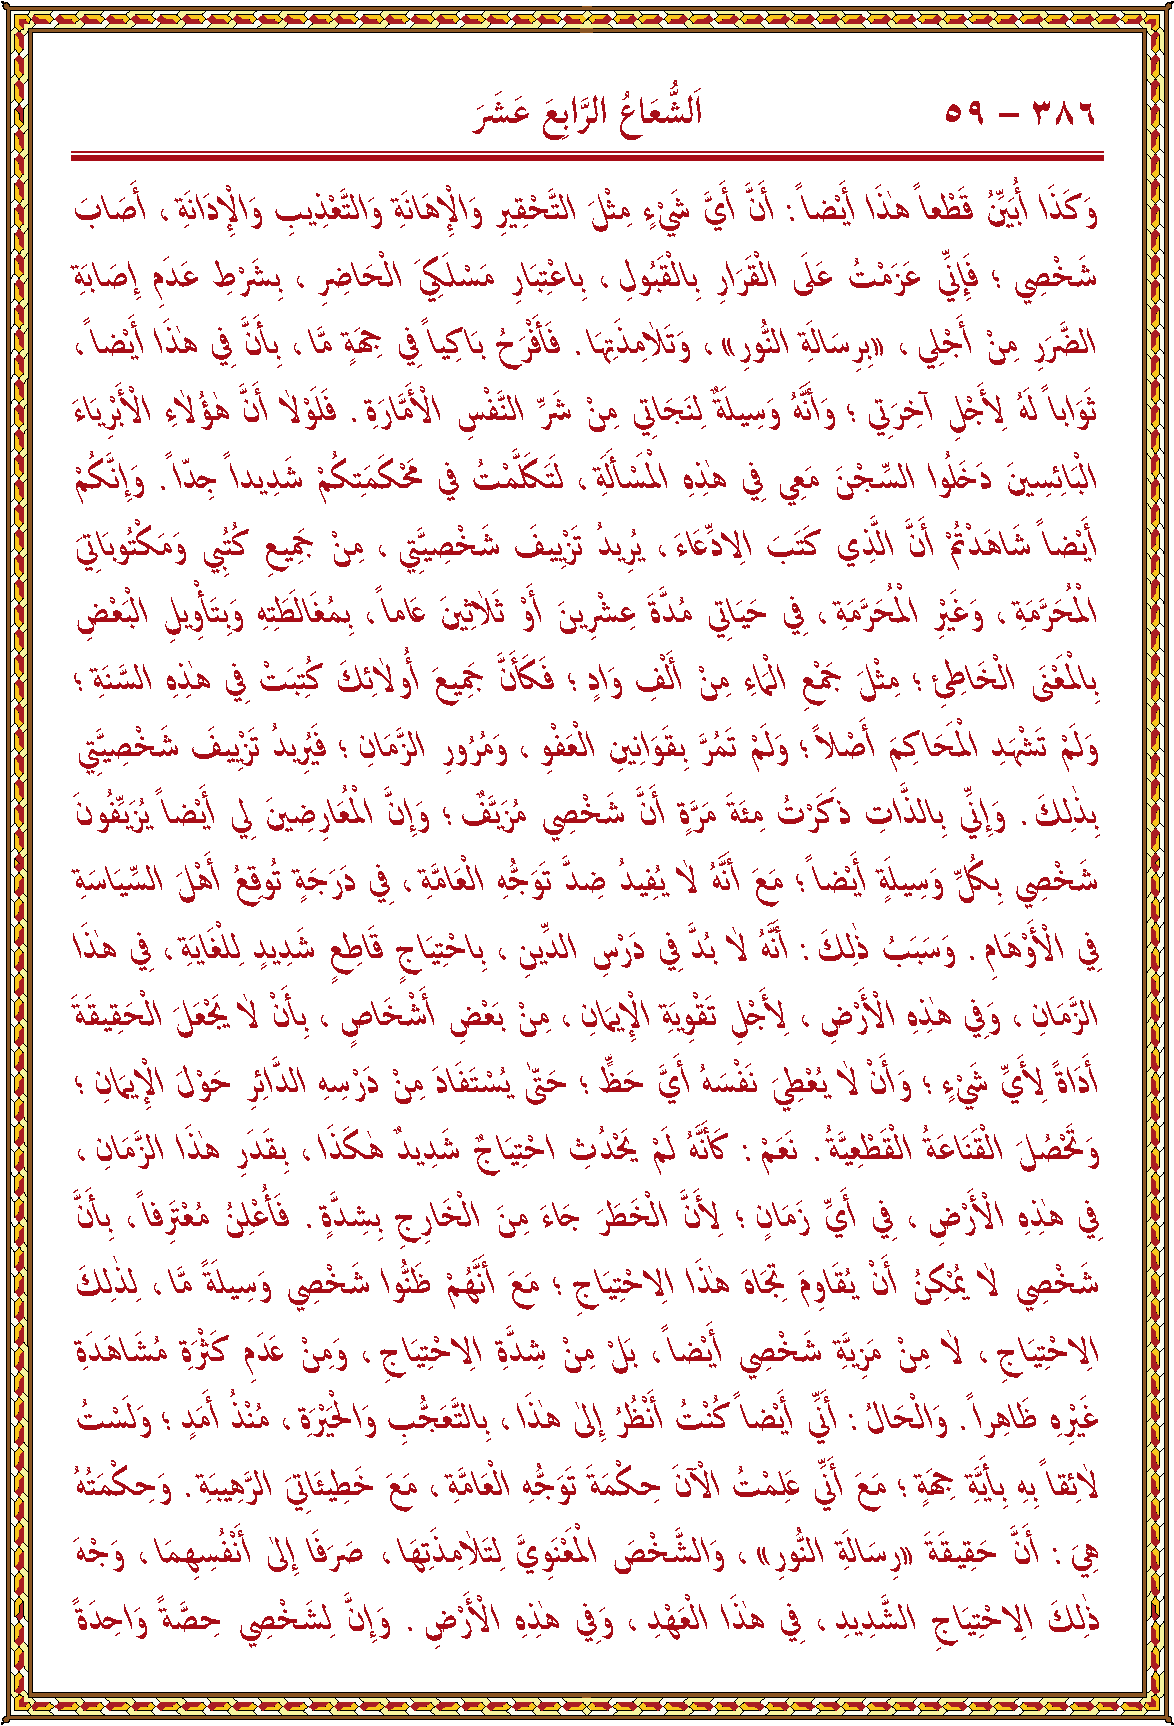 ٣٨٦ – ٥٩ اَلشُّعَاعُ الرَّابِعَ عَشَرَ
وَكَذَا أُبَيِّنُ قَطْعاً هٰذَا أَيْضاً : أَنَّ أَيَّ شَيْءٍ مِثْلَ التَّحْقِيرِ وَالْإِهَانَةِ وَالتَّعْذِيبِ وَالْإِدَانَةِ ، أَصَابَ
شَخْصِي ؛ فَإِنِّي عَزَمْتُ عَلَى الْقَرَارِ بِالْقَبُولِ ، بِاعْتِبَارِ مَسْلَكِيَ الْحَاضِرِ ، بِشَرْطِ عَدَمِ إِصَابَةِ
الضَّرَرِ مِنْ أَجْلِي ، «بِرِسَالَةِ النُّورِ» ، وَتَلَامِذَتِهَا . فَأَفْرَحُ بَاكِياً فِي جِهَةٍ مَّا ، بِأَنَّ فِي هٰذَا أَيْضاً ،
ثَوَاباً لَهُ لِأَجْلِ آخِرَتِي ؛ وَأَنَّهُ وَسِيلَةٌ لِنَجَاتِي مِنْ شَرِّ النَّفْسِ الْأَمَّارَةِ . فَلَوْلَا أَنَّ هٰؤُلَاءِ الْأَبْرِيَاءَ
الْبَائِسِينَ دَخَلُوا السِّجْنَ مَعِي فِي هٰذِهِ الْمَسْأَلَةِ ، لَتَكَلَّمْتُ فِي مَحْكَمَتِكُمْ شَدِيداً جِدّاً . وَإِنَّكُمْ
أَيْضاً شَاهَدْتُمْ أَنَّ الَّذِي كَتَبَ الِادِّعَاءَ ، يُرِيدُ تَزْيِيفَ شَخْصِيَّتِي ، مِنْ جَمِيعِ كُتُبِي وَمَكْتُوبَاتِيَ
الْمُحَرَّمَةِ ، وَغَيْرِ الْمُحَرَّمَةِ ، فِي حَيَاتِي مُدَّةَ عِشْرِينَ أَوْ ثَلَاثِينَ عَاماً ، بِمُغَالَطَتِهِ وَبِتَأْوِيلِ الْبَعْضِ
بِالْمَعْنَى الْخَاطِئِ ؛ مِثْلَ جَمْعِ الْمَاءِ مِنْ أَلْفِ وَادٍ ؛ فَكَأَنَّ جَمِيعَ أُولَائِكَ كُتِبَتْ فِي هٰذِهِ السَّنَةِ ؛
وَلَمْ تَشْهَدِ الْمَحَاكِمَ أَصْلاً ؛ وَلَمْ تَمُرَّ بِقَوَانِينِ الْعَفْوِ ، وَمُرُورِ الزَّمَانِ ؛ فَيُرِيدُ تَزْيِيفَ شَخْصِيَّتِي
بِذٰلِكَ . وَإِنِّي بِالذَّاتِ ذَكَرْتُ مِئَةَ مَرَّةٍ أَنَّ شَخْصِي مُزَيَّفٌ ؛ وَإِنَّ الْمُعَارِضِينَ لِي أَيْضاً يُزَيِّفُونَ
شَخْصِي بِكُلِّ وَسِيلَةٍ أَيْضاً ؛ مَعَ أَنَّهُ لَا يُفِيدُ ضِدَّ تَوَجُّهِ الْعَامَّةِ ، فِي دَرَجَةٍ تُوقِعُ أَهْلَ السِّيَاسَةِ
فِي الْأَوْهَامِ . وَسَبَبُ ذٰلِكَ : أَنَّهُ لَا بُدَّ فِي دَرْسِ الدِّينِ ، بِاحْتِيَاجٍ قَاطِعٍ شَدِيدٍ لِلْغَايَةِ ، فِي هٰذَا
الزَّمَانِ ، وَفِي هٰذِهِ الْأَرْضِ ، لِأَجْلِ تَقْوِيَةِ الْإِيمَانِ ، مِنْ بَعْضِ أَشْخَاصٍ ، بِأَنْ لَا يَجْعَلَ الْحَقِيقَةَ
أَدَاةً لِأَيِّ شَيْءٍ ؛ وَأَنْ لَا يُعْطِيَ نَفْسَهُ أَيَّ حَظٍّ ؛ حَتَّى يُسْتَفَادَ مِنْ دَرْسِهِ الدَّائِرِ حَوْلَ الْإِيمَانِ ؛
وَتَحْصُلَ الْقَنَاعَةُ الْقَطْعِيَّةُ . نَعَمْ : كَأَنَّهُ لَمْ يَحْدُثِ احْتِيَاجٌ شَدِيدٌ هٰكَذَا ، بِقَدَرِ هٰذَا الزَّمَانِ ،
فِي هٰذِهِ الْأَرْضِ ، فِي أَيِّ زَمَانٍ ؛ لِأَنَّ الْخَطَرَ جَاءَ مِنَ الْخَارِجِ بِشِدَّةٍ . فَأُعْلِنُ مُعْتَرِفاً ، بِأَنَّ
شَخْصِي لَا يُمْكِنُ أَنْ يُقَاوِمَ تِجَاهَ هٰذَا الِاحْتِيَاجِ ؛ مَعَ أَنَّهُمْ ظَنُّوا شَخْصِي وَسِيلَةً مَّا ، لِذٰلِكَ
الِاحْتِيَاجِ ، لَا مِنْ مَزِيَّةِ شَخْصِي أَيْضاً ، بَلْ مِنْ شِدَّةِ الِاحْتِيَاجِ ، وَمِنْ عَدَمِ كَثْرَةِ مُشَاهَدَةِ
غَيْرِهِ ظَاهِراً . وَالْحَالُ : أَنِّي أَيْضاً كُنْتُ أَنْظُرُ إِلَى هٰذَا ، بِالتَّعَجُّبِ وَالْحَيْرَةِ ، مُنْذُ أَمَدٍ ؛ وَلَسْتُ
لَائِقاً بِهِ بِأَيَّةِ جِهَةٍ ؛ مَعَ أَنِّي عَلِمْتُ الْآنَ حِكْمَةَ تَوَجُّهِ الْعَامَّةِ ، مَعَ خَطِيئَاتِيَ الرَّهِيبَةِ . وَحِكْمَتُهُ
هِيَ : أَنَّ حَقِيقَةَ «رِسَالَةِ النُّورِ» ، وَالشَّخْصَ الْمَعْنَوِيَّ لِتَلَامِذَتِهَا ، صَرَفَا إِلَى أَنْفُسِهِمَا ، وَجْهَ
ذٰلِكَ الِاحْتِيَاجِ الشَّدِيدِ ، فِي هٰذَا الْعَهْدِ ، وَفِي هٰذِهِ الْأَرْضِ . وَإِنَّ لِشَخْصِي حِصَّةً وَاحِدَةً